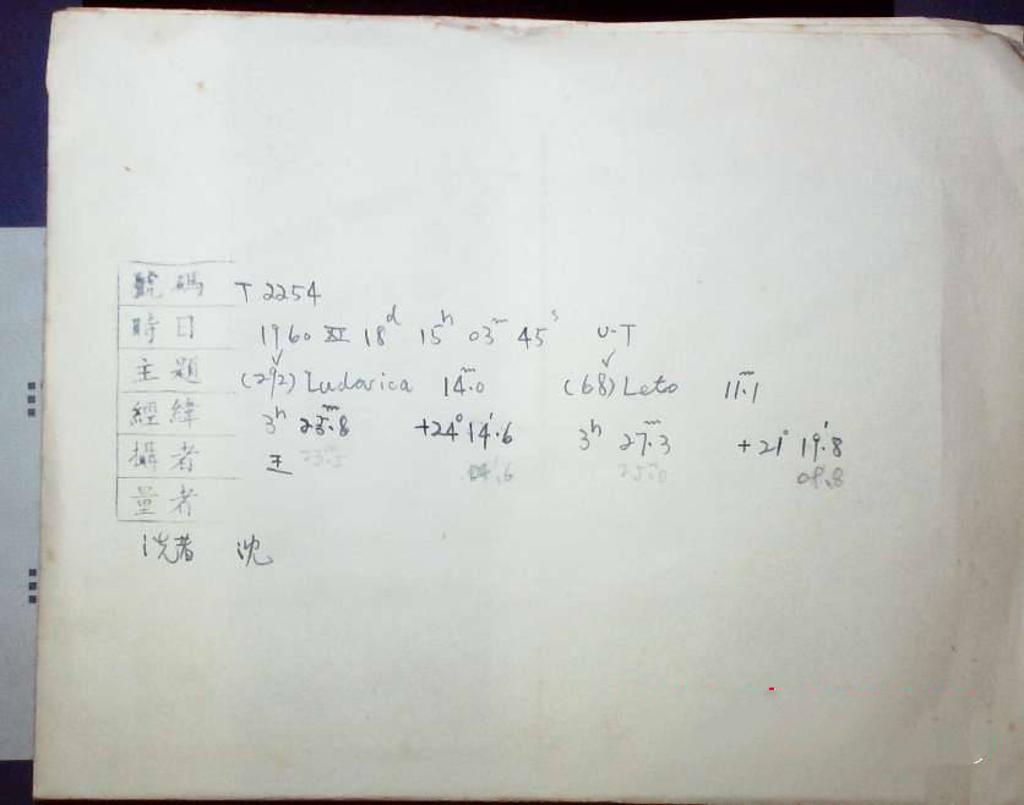 號碼 T 2254
時日 1960 XI 18d 15h 03m 45s U-T
主題 (292) Ludovica 14m.0 (68) Leto 11m.1
經緯 3h 23m.8 +24°14'.6 3h 27m.3 +21°19'.8
攝者 王 23m.5 04'.6 25m.0 09'.8
量者
洗者 沈